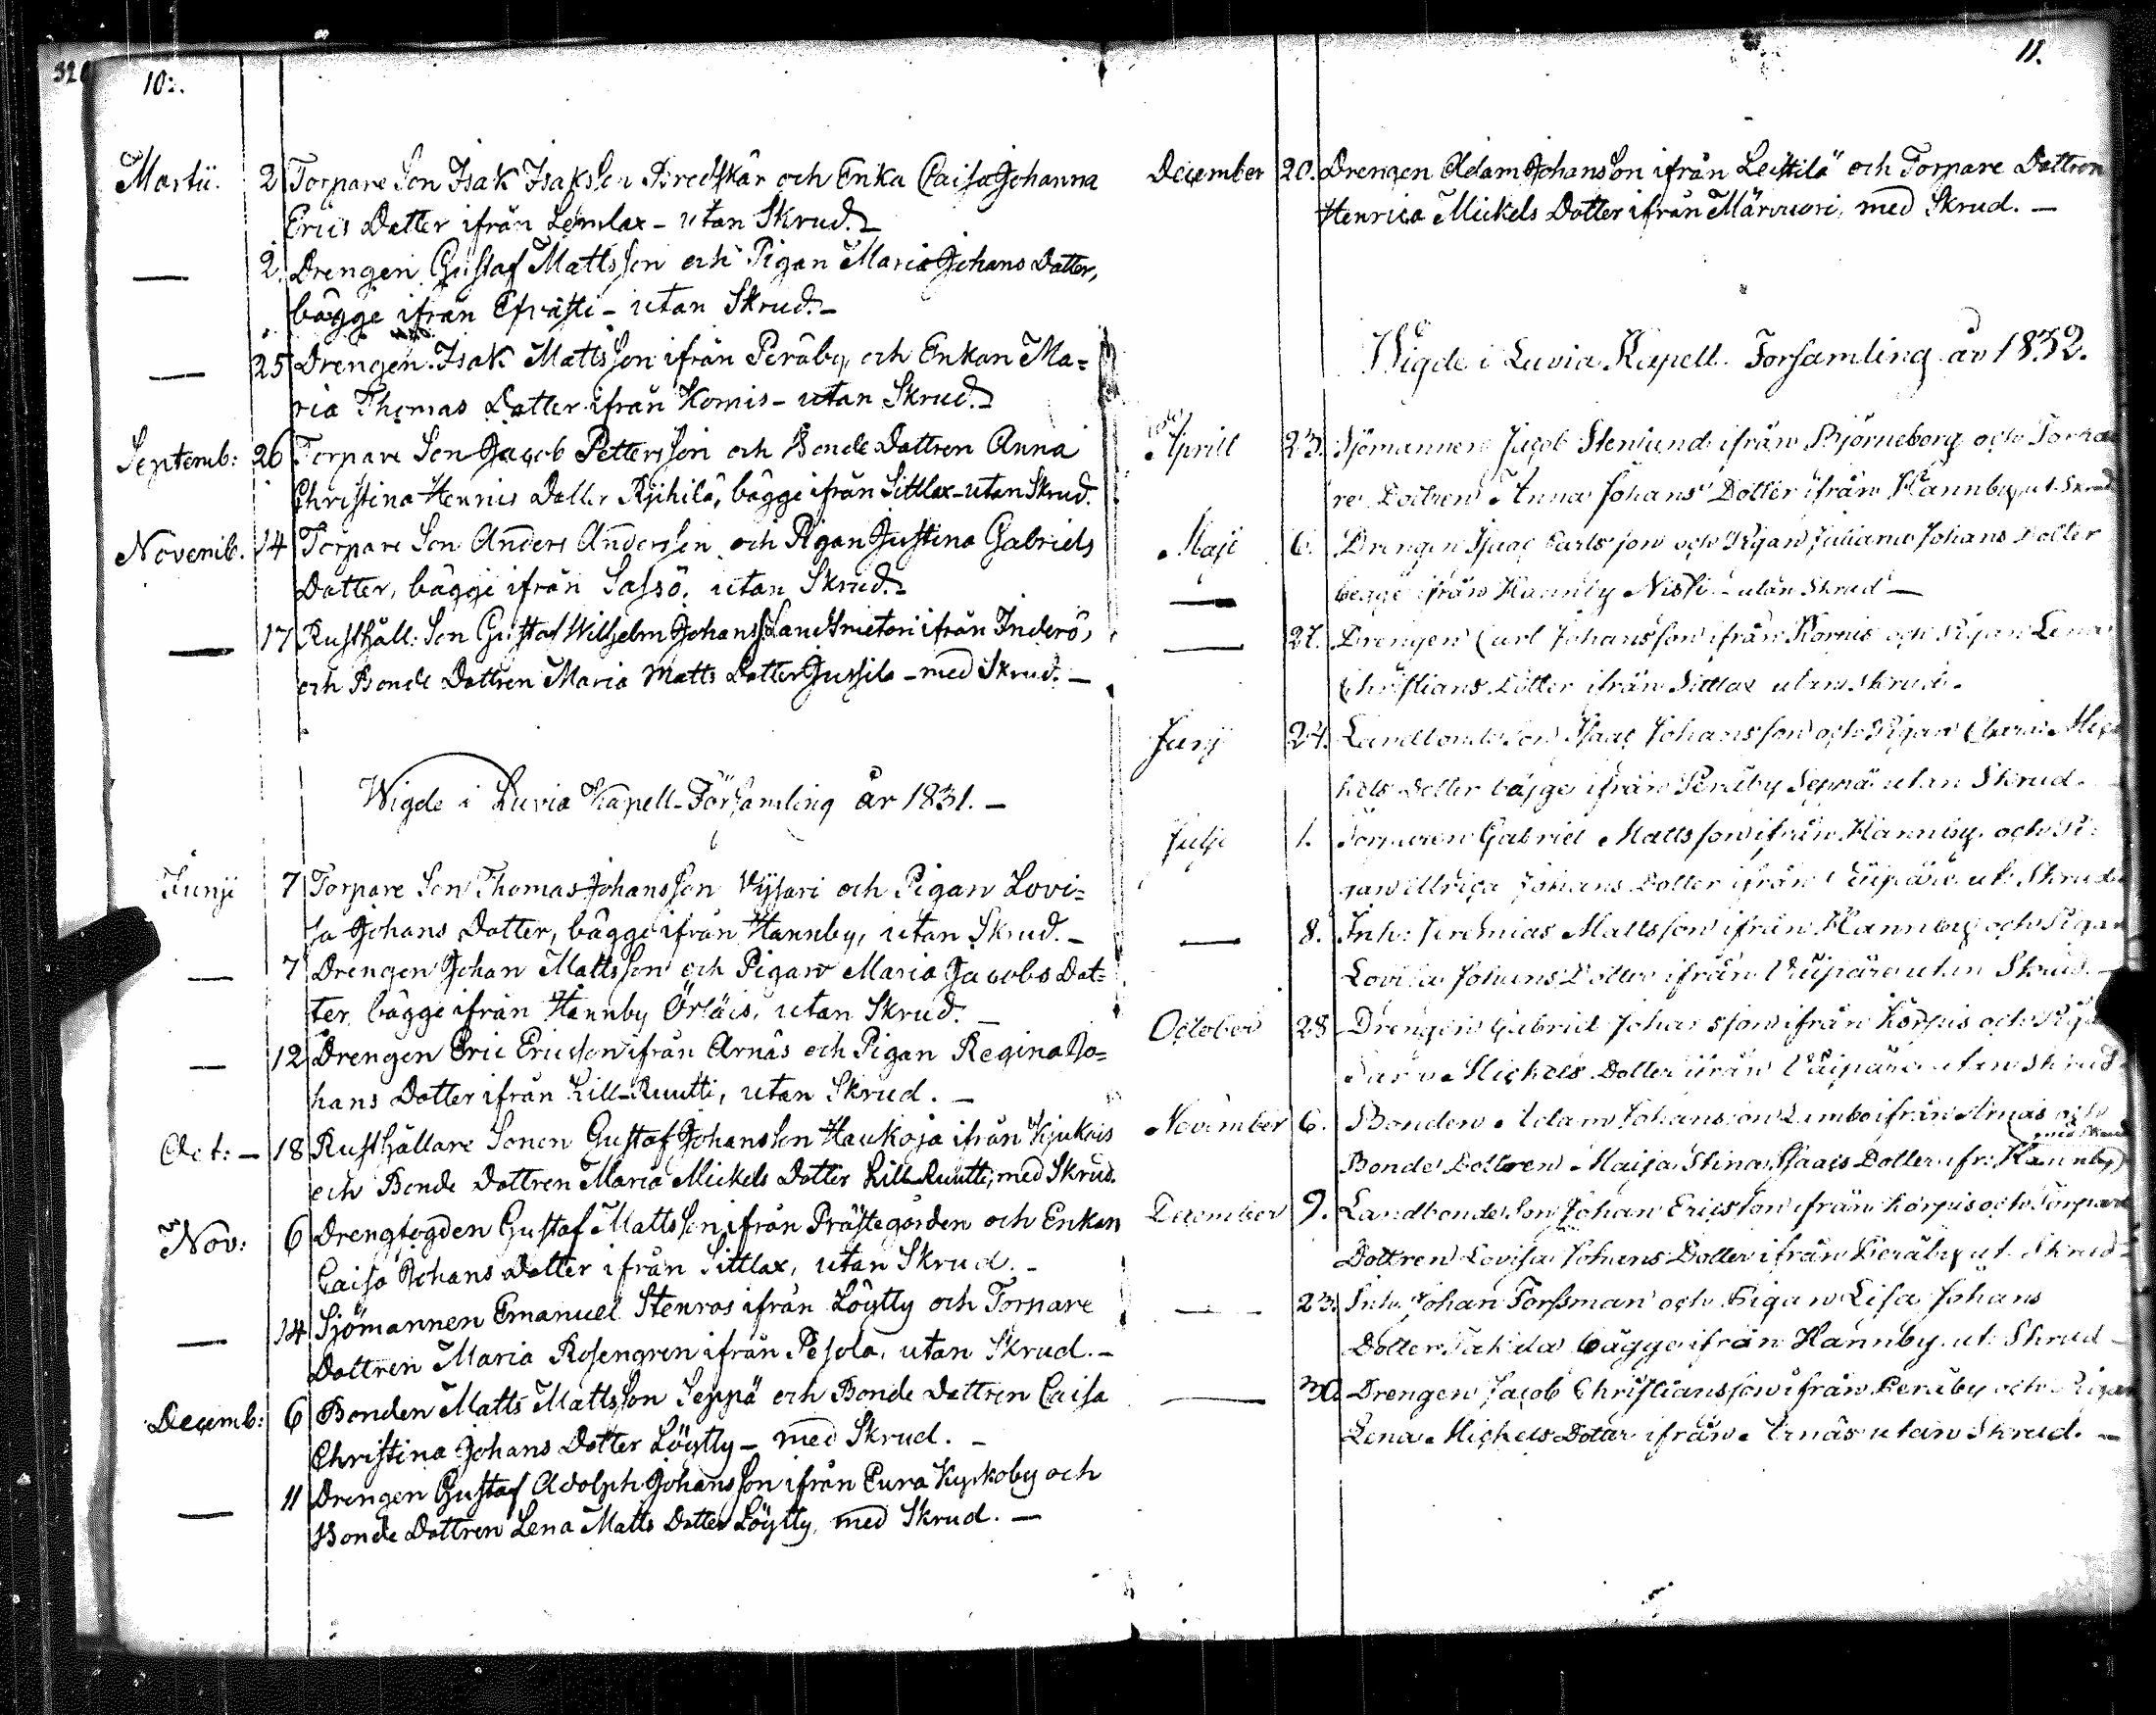 320
10:.
Martii. 2 Torpare Son Isak Isaksson Bredskär och Enka Caisa Johanna
Erics Dotter ifrån Lemlax – utan Skrud. –
— 2. Drengen Gustaf Mattsson och Pigan Maria Johans Dotter,
bägge ifrån – utan Skrud. –
— 25 Drengen Isak Mattsson ifrån Peräby och Enkan Ma=
ria Thomas Dotter ifrån Kornis – utan Skrud. –
Septemb: 26 Torpare Son Jacob Pettersson och Bonde Dottren Anna
Christina Henrics Dotter, bägge ifrån Sittlax – utan Skrud.
Novemb. 14 Torpare Son Anders Andersson och Pigan Justina Gabriels
Dotter, bägge ifrån Sassö, utan Skrud. –
— 17 Rusthåll: Son Gustaf Wilhelm Johansson ifrån Inderö,
och Bonde Dottren Maria Matts Dotter Jussila – med Skrud. –
Wigde i Luvia Kapell-Församling år 1831. –
Junji 7 Torpare Son Thomas Johansson och Pigan Lovi=
sa Johans Dotter, bägge ifrån Hannby, utan Skrud. –
— 7 Drengen Johan Mattsson och Pigan Maria Jacobs Dot=
ter bägge ifrån Hannby, utan Skrud. –
— 12 Drengen Eric Ericsson ifrån Arnäs och Pigan Regina Jo=
hans Dotter ifrån Lill-Ruutti, utan Skrud. –
Oct: – 18 Rusthållare Sonen Gustaf Johansson Haukoja ifrån Kjukais
och Bonde Dottren Maria Mickels Dotter Lill-Ruutti, med Skrud.
Nov: 6 Drengfogden Gustaf Mattsson ifrån Prästegården och Enkan
Caisa Johans Dotter ifrån Sittlax, utan Skrud. –
— 14 Sjömannen Emanuel Stenros ifrån Löytty och Torpare
Dottren Maria Rosengren ifrån Pesola, utan Skrud. –
Decemb: 6 Bonden Matts Mattsson Seppä och Bonde Dottren Caisa
Christina Johans Dotter Löytty – med Skrud. –
— 11 Drengen Gustaf Adolph Johansson ifrån Eura Kyrkoby och
Bonde Dottren Lena Matts Dotter Löytty, med Skrud. –
11.
December 20. Drengen Adam Johansson ifrån Leistilä och Torpare Dottren
Henrica Mickels Dotter ifrån, med Skrud. –
Wigde i Luvia Kapell Forsamling år 1832.
Aprill 23. Sjömannen Jacob Stenlund ifrån Björneborg och Torpa
re Dottren Anna Johans Dotter ifrån Hannby, ut. Skrud
Maji 6. Drengen Isaac Carlsson och Pigan Juliana Johans Dotter
— begge ifrån Hannby – utan Skrud –
— 27. Drengen Carl Johansson ifrån Kornis och Pigan Lena
Christians Dotter ifrån Sittlax utan Skrud.
Junij 24. Landbonde Son Isaac Johansson och Pigan Maria Mic
kels Dotter bägge ifrån Peräby Seppä utan Skrud.
Julji 1. Gabriel Mattsson ifrån Hannby och Pi
gan Ulrica Johans Dotter ifrån Väipäre ut. Skrud.
— 8. Inh: Jeremias Mattsson ifrån Hannby och Pigan
Lovisa Johans Dotter ifrån Väipäre utan Skrud. –
October 28 Drengen Gabriel Johansson ifrån Korpis och Pigan
Sara Michels Dotter ifrån Väipäre utan Skrud
November 6. Bonden Adam Johansson Limbo ifrån Arnäs och
Bonde Dottren Maija Stina Isaacs Dotter ifr: Hannby
med Skrud
December 9. Landbonde Son Johan Ericsson ifrån Korpis och Torpare
Dottren Lovisa Johans Dotter ifrån Peräby ut. Skrud –
— 23. Inh. Johan Forssman och Pigan Lisa Johans
Dotter bägge ifrån Hannby ut. Skrud –
— 30. Drengen Jacob Christiansson ifrån Peräby och Pigan
Lena Michels Dotter ifrån Arnäs utan Skrud. –